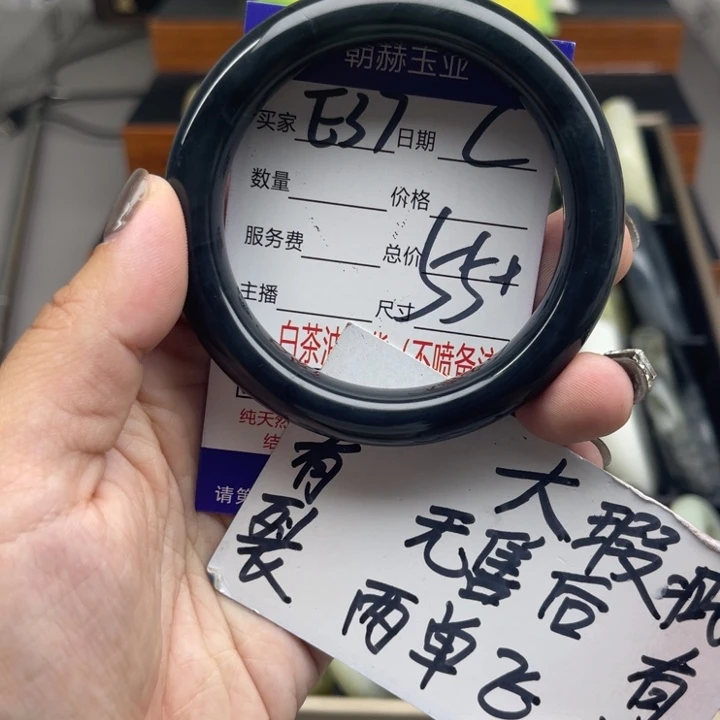 朝赫玉业
买家 E37 日期 C
数量 价格
服务费 总价
主播 尺寸 55+
白茶油 不喷备注
纯天然
结
请第
有裂
大瑕疵
无售后 有
两单飞